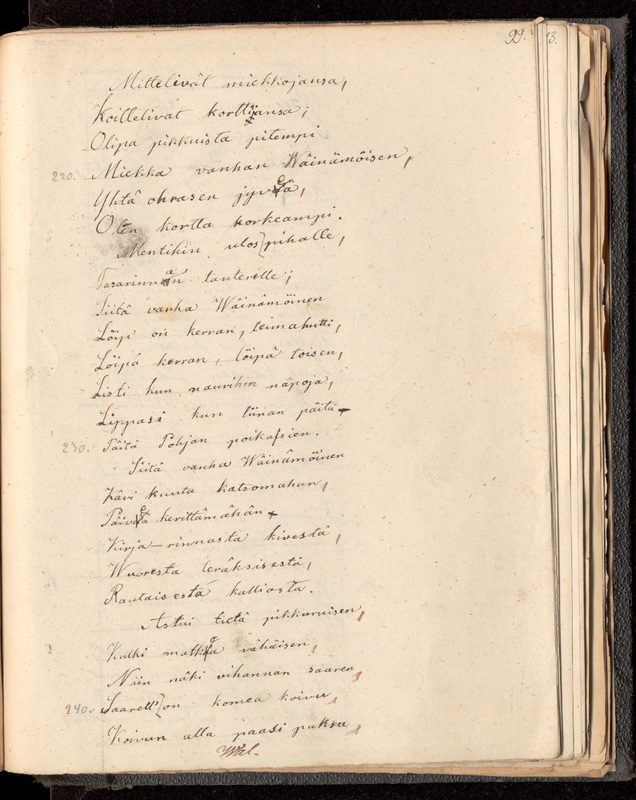 99. 13.
Mittelivät miekkojansa,
Koittelivat korttijansa;
Olipa pikkuista pitempi
220. Miekka vanhan Wäinämöisen,
Yhtä ohrasen jyveä,
Olen kortta korkeampi.
Mentihin ulos pihalle,
Tasarinnan tanterelle;
Siitä vanha Wäinämöinen
Löipi on kerran, leimahutti,
Löipä kerran, löipä toisen,
Listi kun naurihin näpöjä,
Lippasi kun liinan päitä
230. Päitä Pohjan poikasien.
Siitä vanha Wäinämöinen
Kävi kuuta katsomahan,
Päiveä kerittämähän
Kirja-rinnasta kivestä,
Wuoresta teräksisestä,
Rautaisesta kalliosta.
Astui tietä pikkuruisen,
Kulki matkoa vähäisen,
Niin näki vihannan saaren,
240. Saarell' on komea koivu,
Koivun alla paasi paksu,